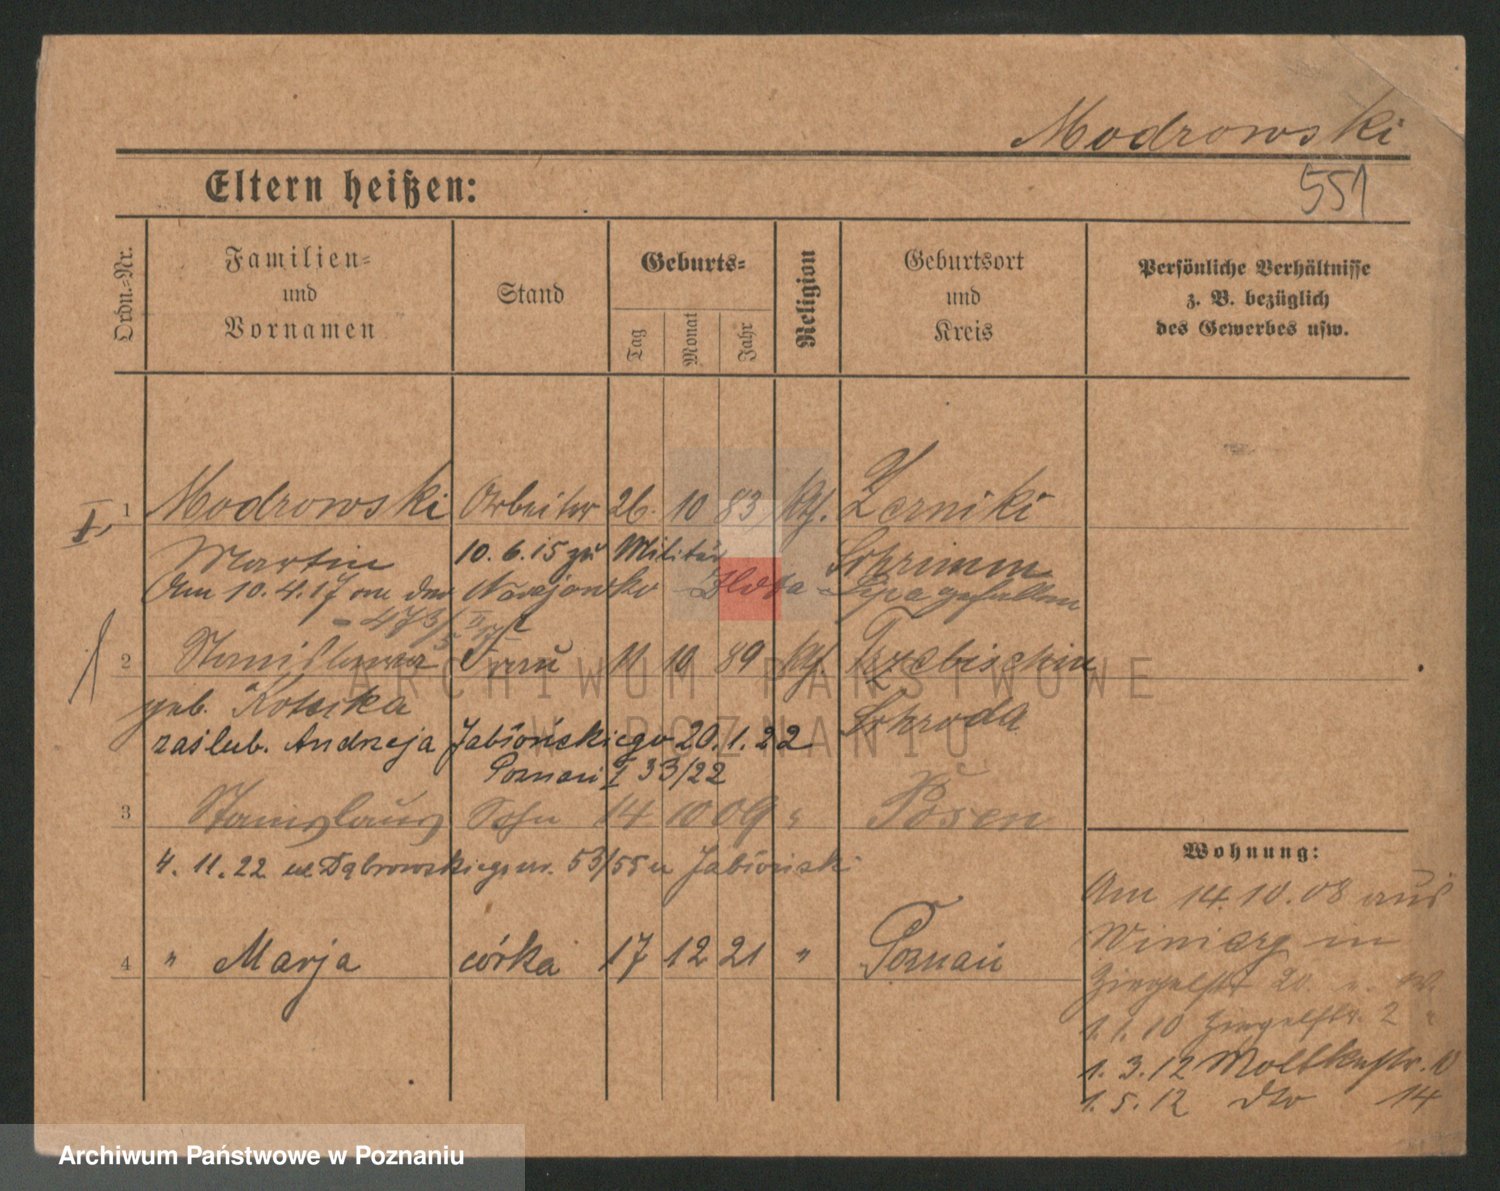 Modrowski
551
Eltern heißen:
Ordn.-Nr.
Familien-
und
Vornamen
Stand
Geburts-
Tag
Monat
Jahr
Religion
Geburtsort
und
Kreis
Persönliche Verhältnisse
z. B. bezüglich
des Gewerbes usw.
I.
1 Modrowski Arbeiter 26. 10 83 kth. Zerniki
Martin 10. 6. 15 zu Militär Schrimm
Am 10. 4. 17 an der Zlota - Lipa gefallen
2 Stanislawa Frau 11 10 89 kth.
geb. Schroda
zaślub. Andrzeja Jabłońskiego 20. 1. 22
Poznań I 33/22
3 Stanislaus Sohn 14 10 09 " Posen
4. 11. 22 ul Dąbrowskiego nr. 53/55 u Jabłoński
4 " Marja córka 17 12 21 " Poznań
Wohnung:
Am 14. 10. 08 aus
Winiary in
Ziegelstr 20.
1. 1. 10 Ziegelstr. 2 "
1. 3. 12 Moltkestr.
1. 5. 12 dto 14
ARCHIWUM PAŃSTWOWE
W POZNANIU
Archiwum Państwowe w Poznaniu